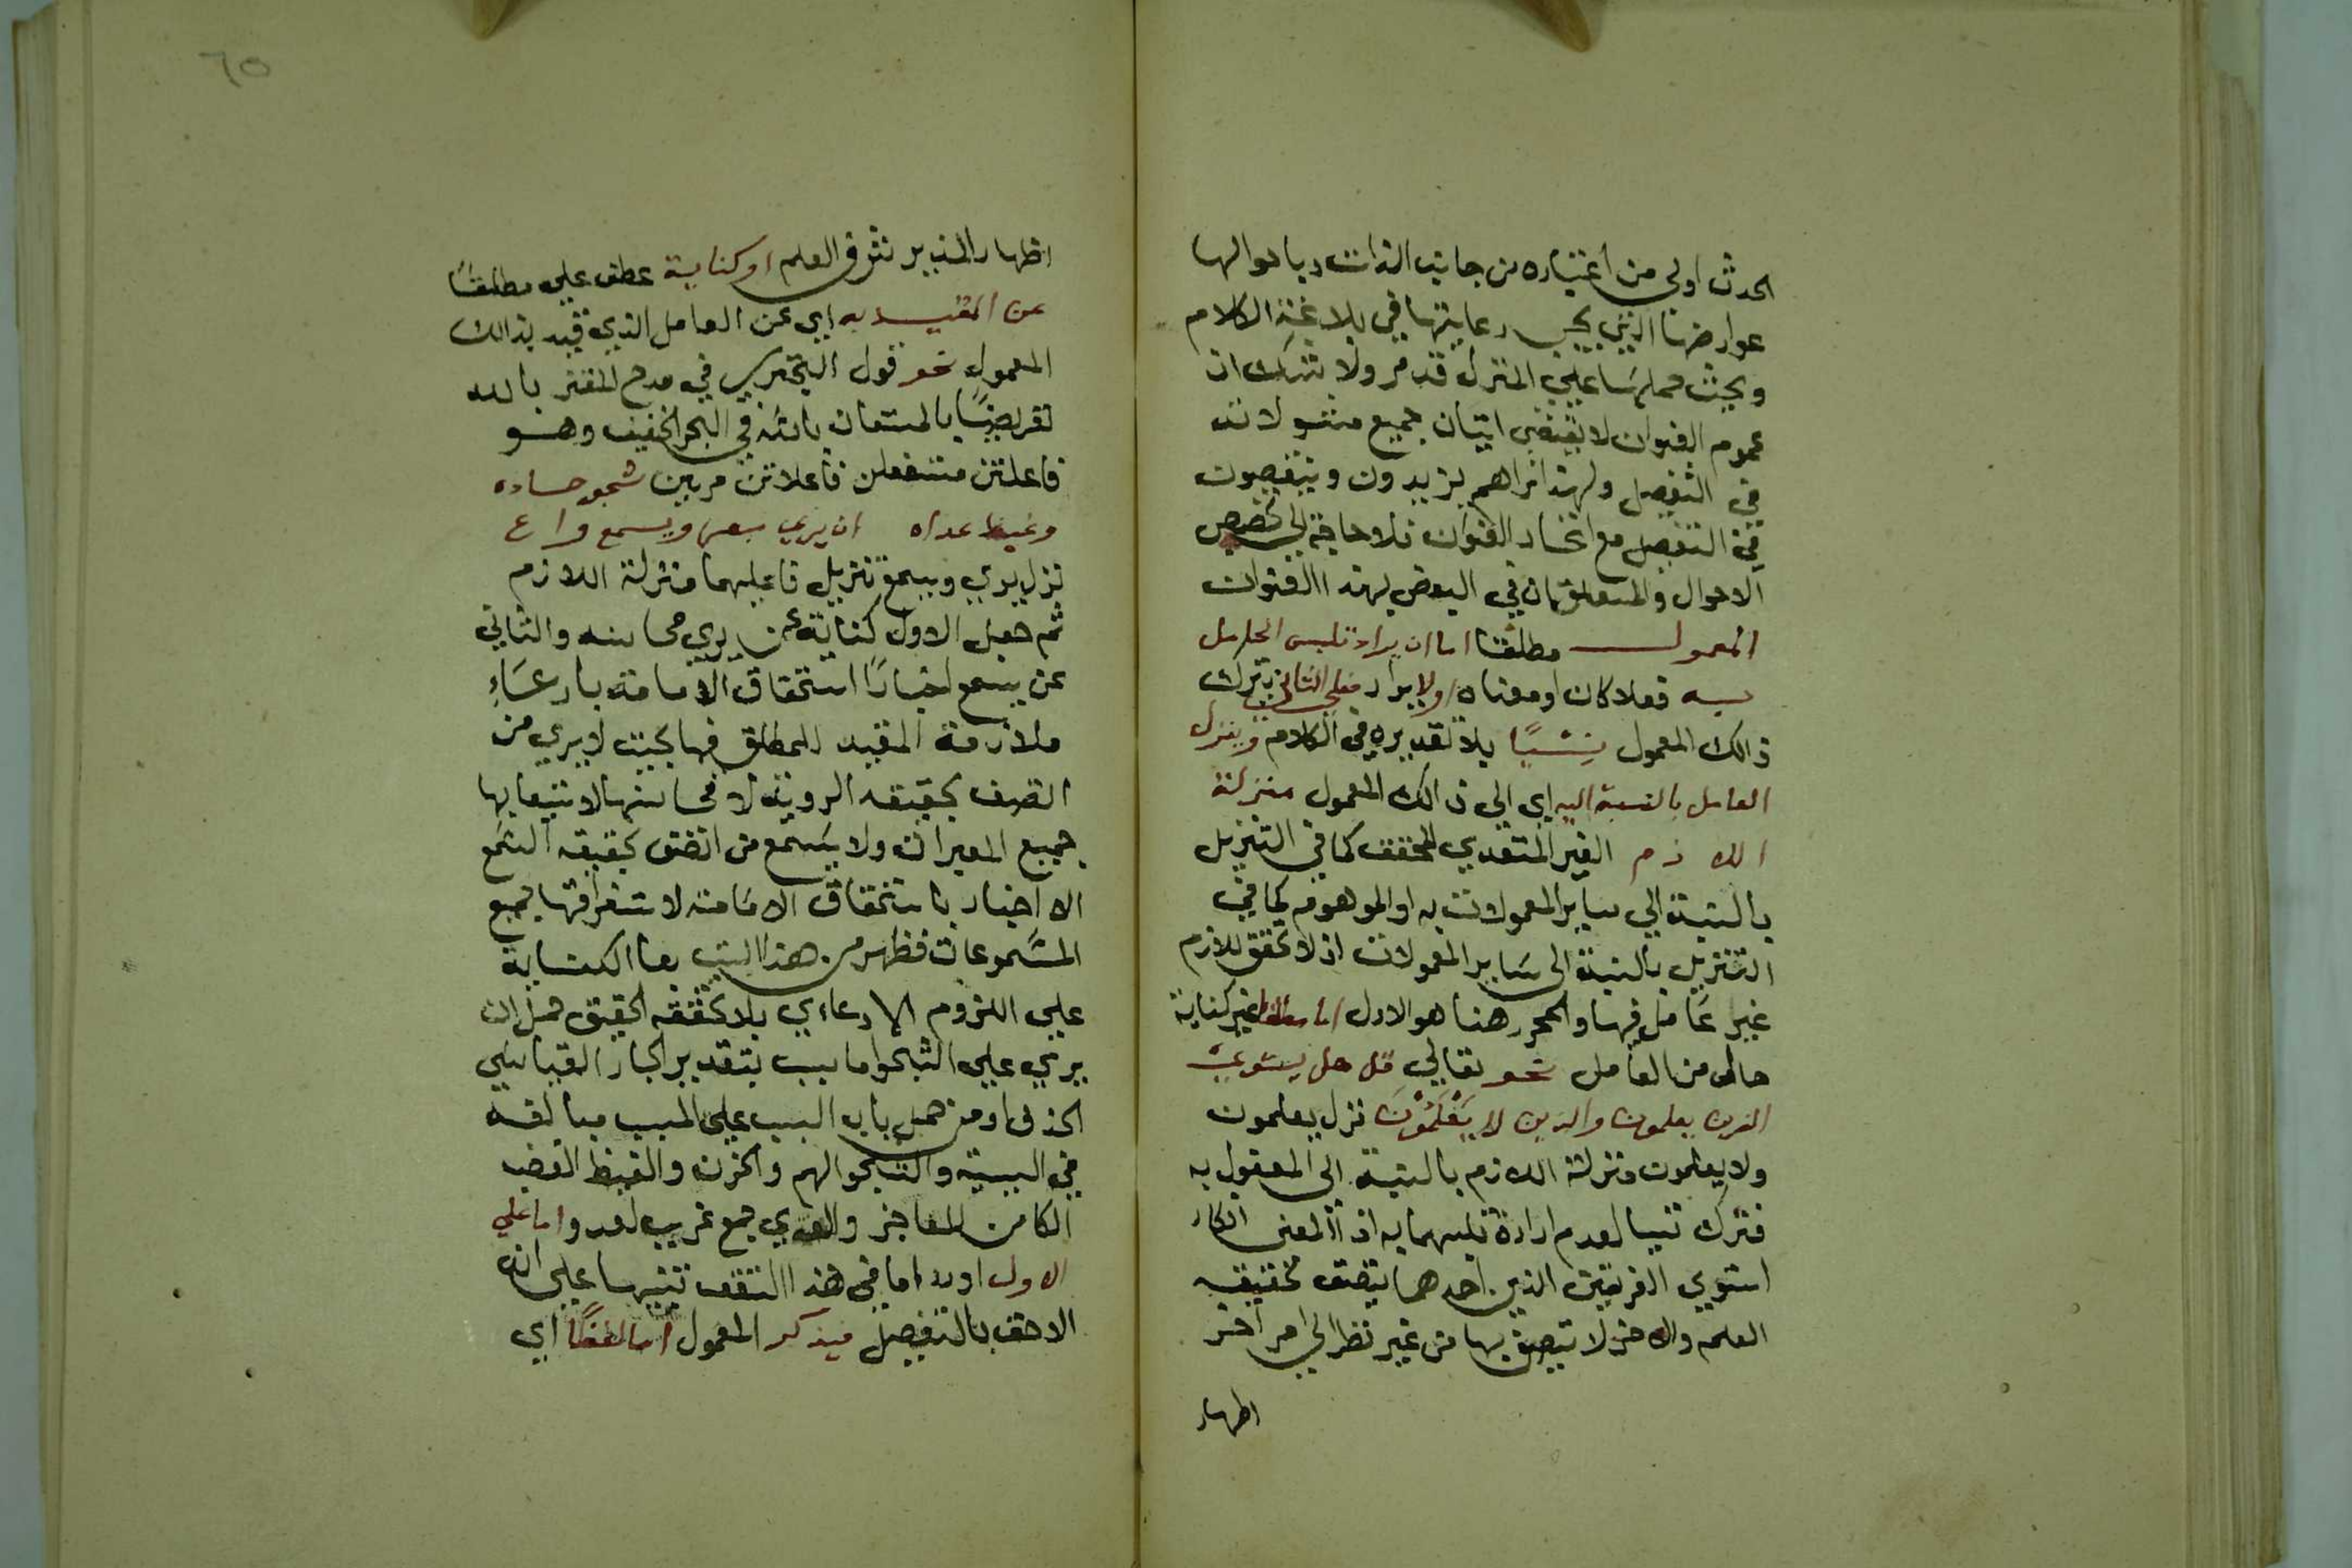 الحدث اولي من اعتباره من جانب الذات وباحوالها
عوارضها التي يجب رعايتها في بلاغة الكلام
وبحث علي المنزل قد مر ولا شك ان
عموم العنوان لا يقتضي اتيان جميع مشمولاته
في التفصيل ولهذا نراهم يزيدون وينقصون
في التفصيل مع اتحاد العنوان فلا حاجة الي تخصيص
الاحوال والمتعلق بان في البعض بهذا العنوان
المعمول مطلقا اما ان يراد تلبس العامل
به فعلا كان او معناه او لا يراد فعلي الثاني يترك
ذالك المعمول نسيا بلا تقديره في الكلام وينزل
العامل بالنسبة اليه اي الي ذالك المعمول منزلة
اللازم الغير المتعدي المحقق كما في التنزيل
بالنسبة الي ساير المعمولات به او الموهوم كما في
التنزيل بالنسبة الي ساير المعمولات اذ لا تحقق للازم
غير عامل فيها والمحرر هنا هو الاول اما مطلقا غير كناية
حال من العامل نحو تعالي قل هل يستوي
الذين يعلمون والذين لا يَعْلَمُوْنَ نزل يعلمون
ولا يعلمون منزلة اللازم بالنسبة الي المفعول به
فترك نسيا لعدم ارادة تلبسهما به اذ المعني انكار
استوي الفريقين الذين احدهما يتصف بحقيقة
العلم والاخر لا يتصف بها من غير نظر الي امر اخر
اظهار
٦٥
اظهار المزيد شرف العلم او كناية عطف علي مطلقا
عن المقيد به اي عن العامل الذي قيد بذالك
المعمول نحو قول البحتري في مدح المعتز بالله
تعريضا بالمستعان بالله في البحر الخفيف وهو
فاعلاتن مستفعلن فاعلاتن مرتين شجو حساده
وغيظ عداه ان يري مبصر ويسمع واع
نزل يري ويسمع تنزيل فاعليهما منزلة اللازم
ثم جعل الاول كناية عن يري محاسنه والثاني
عن يسمع اخبارا استحقاق الامامة بادعاء
ملازمة المقيد للمطلق فيها بحيث لا يري من
اتصف بحقيقة الروية الا محاسنها لا تتبعا بها
جميع المبصرات ولا يسمع من اتصف بحقيقة السمع
الا اخبار باستحقاق الامامة لاستغراقها جميع
المسموعات فظهر من هذا البيت بنا الكناية
علي اللزوم الادعاءي بلا تحققه الحقيق فحمل ان
يري علي الشجو اما بتقدير الجار القياسي
الحذف او من حمل باب السبب علي المسبب مبالغة
في السببية والشجو الهم والحزن والغيظ الغضب
الكامن للعاجز والعدي جمع غريب لعدو واما علي
الاول اورد اما في هذا الشق تنبيها علي انه
الاحق بالتفصيل فيذكر المعمول اما لفظًا اي